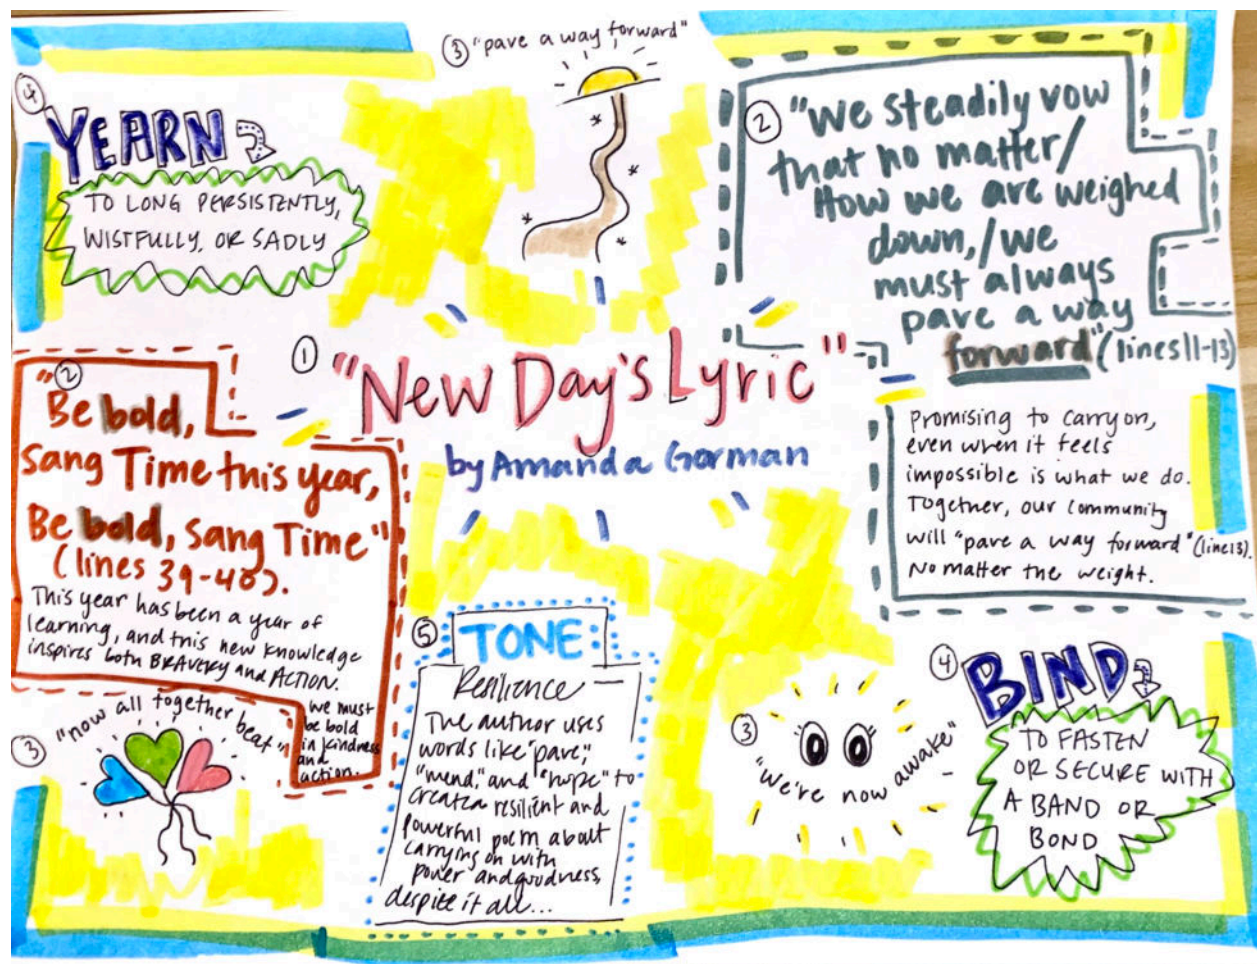 ③ "pave a way forward"
④
YEARN
TO LONG PERSISTENTLY,
WISTFULLY, OR SADLY
② "We steadily vow
that no matter/
How we are weighed
down,/we
must always
pave a way
forward" (lines 11-13)
Promising to carry on,
even when it feels
impossible is what we do.
Together, our community
will "pave a way forward" (line 13).
No matter the weight.
① "New Day's Lyric"
by Amanda Gorman
②
"Be bold,
sang Time this year,
Be bold, sang Time"
(lines 39-40).
This year has been a year of
learning, and this new knowledge
inspires both BRAVERY and ACTION.
we must
be bold
in kindness
and
action.
③ "now all together beat"
⑤ TONE
Resilience
The author uses
words like "pave,"
"mend," and "hope" to
create a resilient and
powerful poem about
carrying on with
power and goodness,
despite it all...
③ "We're now awake"
④ BIND
TO FASTEN
OR SECURE WITH
A BAND OR
BOND